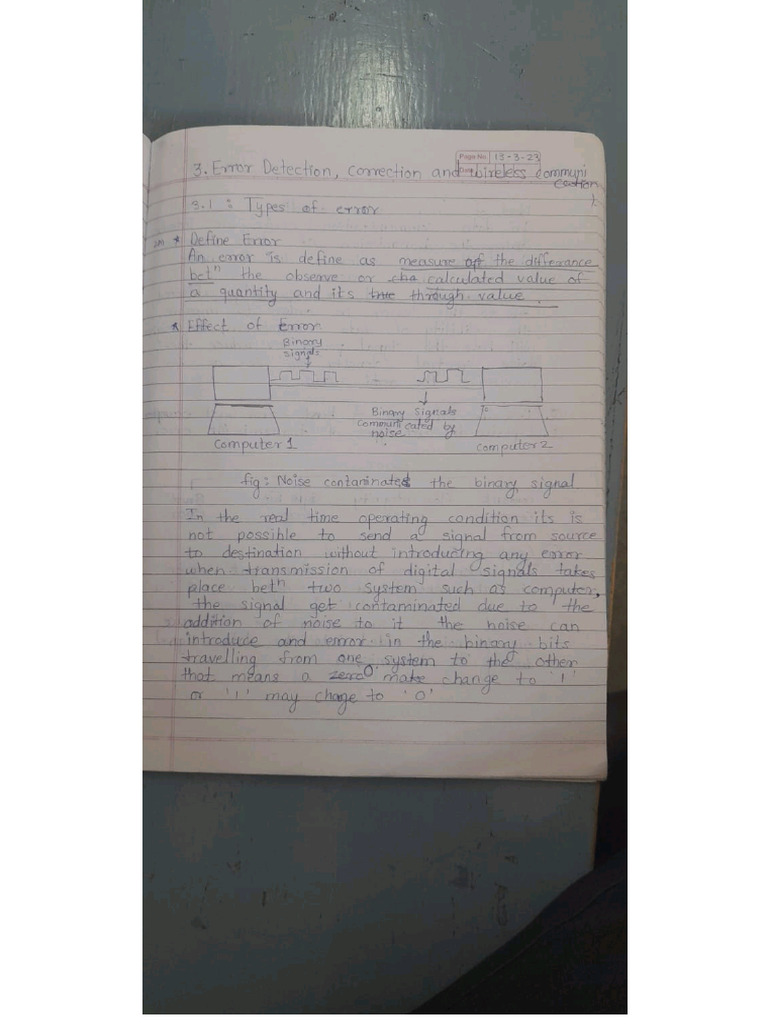 Page No. 13-3-23
3. Error Detection, correction and wireless communi
cation
3.1 : Types of error
* Define Error
An error is define as measure of the differance
betn the observe or calculated value of
a quantity and its through value.
* Effect of Error
Binary
signals
Binary signals
communicated by
noise
computer 1
computer 2
fig: Noise contaminated the binary signal
In the real time operating condition its is
not possible to send a signal from source
to destination without introducing any error
when transmission of digital signals takes
place betn two system such as computer,
the signal get contaminated due to the
addition of noise to it the noise can
introduce and error in the binary bits
travelling from one system to the other
that means a 0 make change to '1'
or '1' may chage to '0'